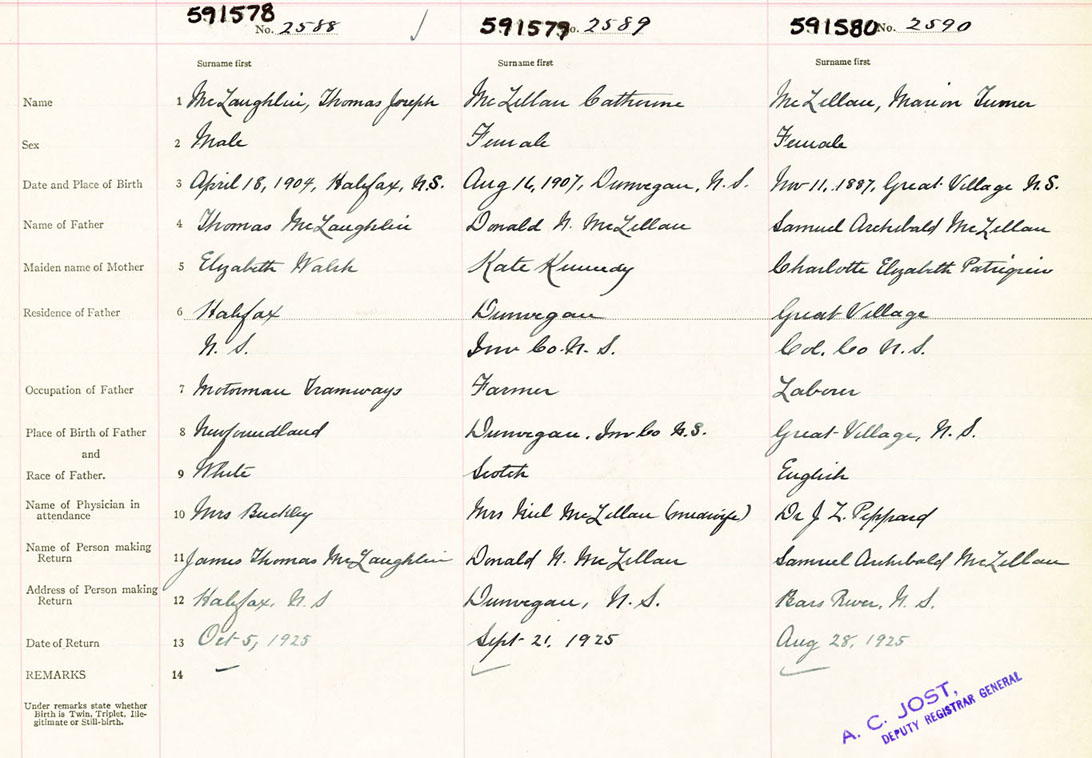 591578 591579 591580
No. 2588 No. 2589 No. 2590
Surname first Surname first Surname first
Name 1 McLaughlin, Thomas Joseph McLellan Catherine McLellan, Marion Turner
Sex 2 Male Female Female
Date and Place of Birth 3 April 18, 1904, Halifax, N.S. Aug 16, 1907, Dunvegan, N.S. Nov 11, 1887, Great Village N.S.
Name of Father 4 Thomas McLaughlin Donald N. McLellan Samuel Archibald McLellan
Maiden name of Mother 5 Elizabeth Walsh Kate Kennedy Charlotte Elizabeth Patriquin
Residence of Father 6 Halifax Dunvegan Great Village
N. S. Inv Co. N. S. Col. Co N.S.
Occupation of Father 7 Motorman Tramways Farmer Laborer
Place of Birth of Father 8 Newfoundland Dunvegan, Inv Co N.S. Great Village, N.S.
and
Race of Father. 9 White Scotch English
Name of Physician in
attendance 10 Mrs Buckley Mrs Neil McLellan (midwife) Dr J. L. Peppard
Name of Person making
Return 11 James Thomas McLaughlin Donald N. McLellan Samuel Archibald McLellan
Address of Person making
Return 12 Halifax, N.S Dunvegan, N.S. Bass River, N.S.
Date of Return 13 Oct 5, 1925 Sept 21, 1925 Aug 28, 1925
REMARKS 14
Under remarks state whether
Birth is Twin, Triplet, Ille-
gitimate or Still-birth.
A. C. JOST,
DEPUTY REGISTRAR GENERAL